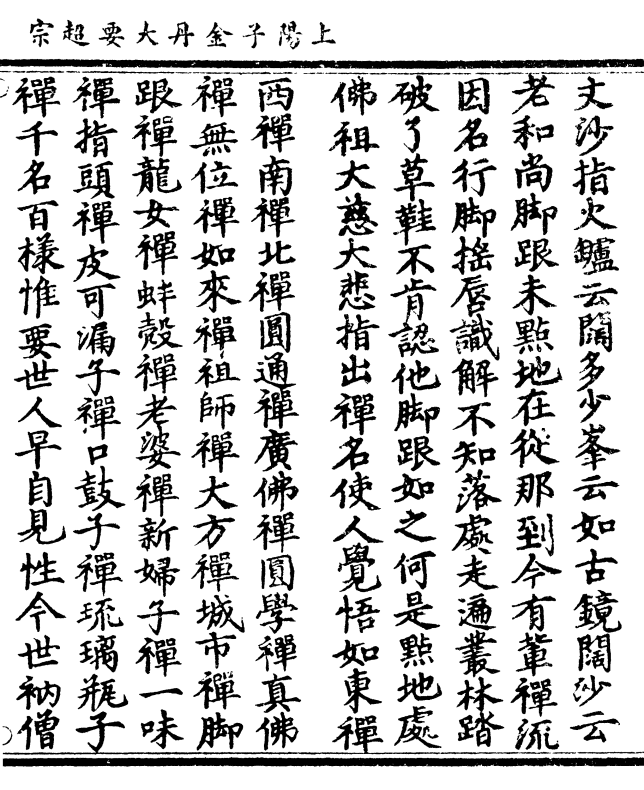 上陽子金丹大要超宗
丈沙指火鑪云闊多少峯云如古鏡闊沙云
老和尚脚跟未點地在從那到今有輩禪流
因名行脚揺唇識解不知落處走遍叢林踏
破了草鞋不肯認他脚跟如之何是點地處
佛祖大慈大悲指出禪名使人覺悟如東禪
西禪南禪北禪圓通禪廣佛禪圓學禪真佛
禪無位禪如來禪祖師禪大方禪城市禪脚
跟禪龍女禪蚌殼禪老婆禪新婦子禪一味
禪指頭禪皮可漏子禪口鼓子禪琉璃瓶子
禪千名百樣惟要世人早自見性今世衲僧